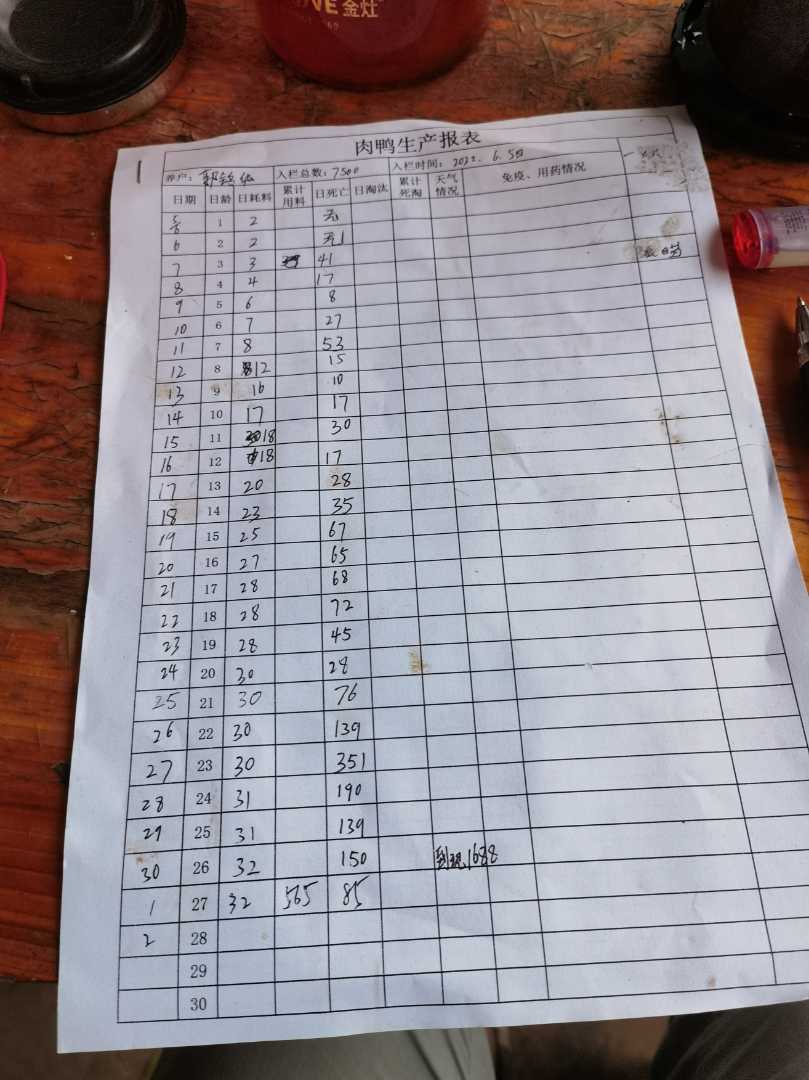 VE金灶
肉鸭生产报表
养户： 入栏总数：7500 入栏时间：2022. 6. 5日
日期 日龄 日耗料 累计用料 日死亡 日淘汰 累计死淘 天气情况 免疫、用药情况
1 2 无
6 2 2
7 3 3 41
8 4 4 17
9 5 6 8
10 6 7 27
11 7 8 53
12 8 12 15
13 9 16 10
14 10 17 17
15 11 18 30
16 12 18 17
17 13 20 28
18 14 23 35
19 15 25 67
20 16 27 65
21 17 28 68
22 18 28 72
23 19 28 45
24 20 30 28
25 21 30 76
26 22 30 139
27 23 30 351
28 24 31 190
29 25 31 139
30 26 32 150 到现1688
1 27 32 565 85
2 28
29
30